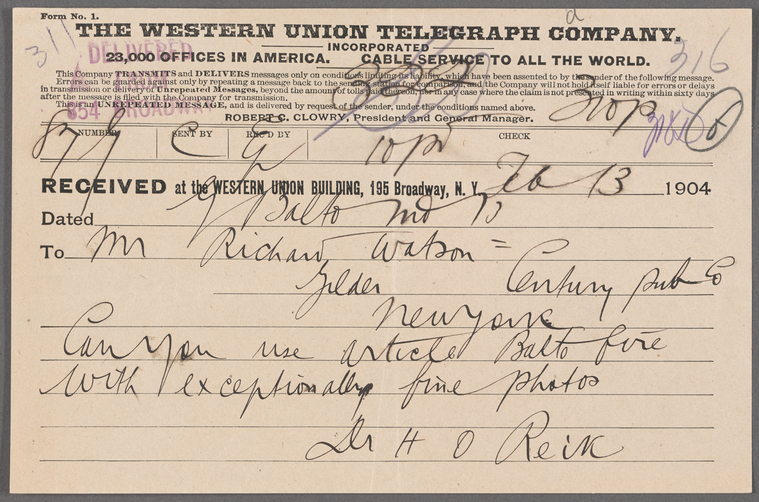 Form No. 1.
THE WESTERN UNION TELEGRAPH COMPANY.
INCORPORATED
23,000 OFFICES IN AMERICA. CABLE SERVICE TO ALL THE WORLD.
This Company TRANSMITS and DELIVERS messages only on conditions limiting its liability, which have been assented to by the sender of the following message.
Errors can be guarded against only by repeating a message back to the sending station for comparison, and the Company will not hold itself liable for errors or delays
in transmission or delivery of Unrepeated Messages, beyond the amount of tolls paid thereon, nor in any case where the claim is not presented in writing within sixty days
after the message is filed with the Company for transmission.
This is an UNREPEATED MESSAGE, and is delivered by request of the sender, under the conditions named above.
ROBERT C. CLOWRY, President and General Manager.
DELIVERED
854 BROADWAY
316
310p
NUMBER SENT BY REC'D BY CHECK
10 pd
RECEIVED at the WESTERN UNION BUILDING, 195 Broadway, N. Y. Feb 13 1904
Dated Balto Md 13
To Mr Richard Watson =
Gilder Century Pub Co
New York
Can you use article Balto fire
with exceptionally fine photos
Dr H O Reik